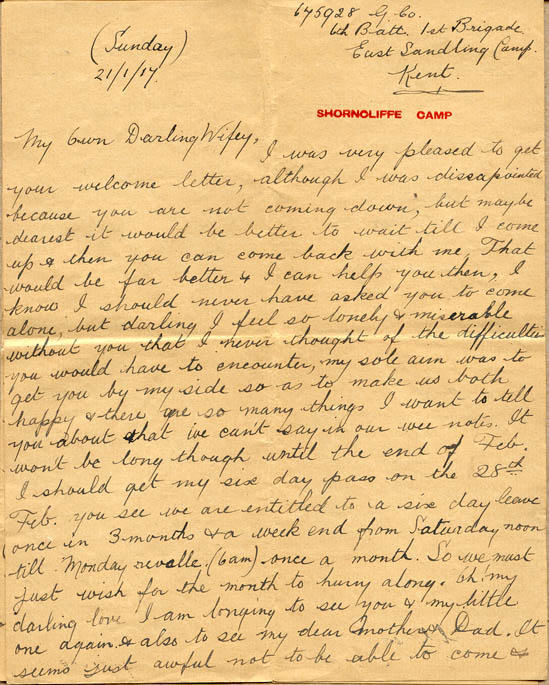 675928 G. Co.
6th Batt. 1st Brigade
East Sandling Camp.
Kent.
(Sunday)
21/1/17.
SHORNCLIFFE CAMP
My Own Darling Wifey,
I was very pleased to get
your welcome letter, although I was dissapointed
because you are not coming down, but maybe
dearest it would be better to wait till I come
up & then you can come back with me, That
would be far better & I can help you then, I
know I should never have asked you to come
alone, but darling I feel so lonely & miserable
without you that I never thought of the difficulties
you would have to encounter, my sole aim was to
get you by my side so as to make us both
happy & there are so many things I want to tell
you about that we can't say in our wee notes. It
won't be long though until the end of Feb.
I should get my six day pass on the 28th
Feb. you see we are entitled to a six day leave
once in 3 months & a week end from Saturday noon
till Monday revalle (6am) once a month. So we must
just wish for the month to hurry along. Oh my
darling love I am longing to see you & my little
one again & also to see my dear Mother & Dad. It
seems just awful not to be able to come &